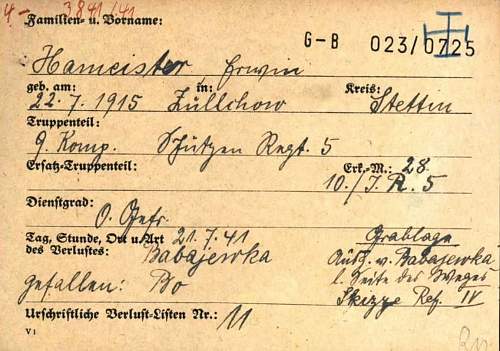 4- 3841/41
Familien- u. Vorname:
G-B 023/0725
Hameister Erwin
geb. am: in: Kreis:
22.7.1915 Züllchow Stettin
Truppenteil:
9. Komp. Schützen Regt. 5
Ersatz-Truppenteil: Erk.-M.: 28
10./J.R. 5
Dienstgrad:
O. Gefr.
Tag, Stunde, Ort u. Art 21.7.41 Grablage
des Verlustes: Babajewka Ausg. v. Babajewka
gefallen: Bo l. Seite des Weges
Skizze Ref. IV
Urschriftliche Verlust-Listen Nr.: 11
V1